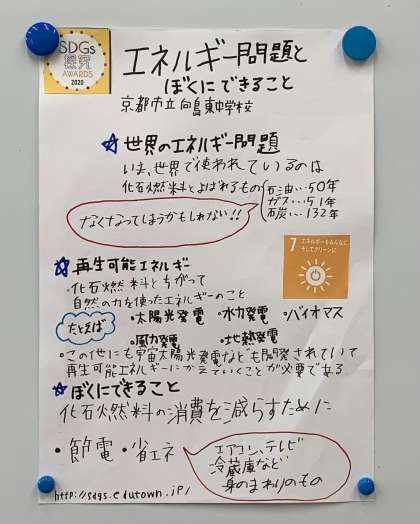 SDGs
探究
AWARDS
2020
エネルギー問題と
ぼくにできること
京都市立向島東中学校
世界のエネルギー問題
いま、世界で使われているのは
化石燃料とよばれるもの
石油…50年
ガス…51年
石炭…132年
なくなってしまうかもしれない!!
7 エネルギーをみんなに
そしてクリーンに
再生可能エネルギー
・化石燃料とちがって
自然の力を使ったエネルギーのこと
たとえば
・太陽光発電 ・水力発電 ・バイオマス
・風力発電 ・地熱発電
・この他にも宇宙太陽光発電なども開発されていて
再生可能エネルギーにかえていくことが必要である
ぼくにできること
化石燃料の消費を減らすために
・節電・省エネ
エアコン、テレビ
冷蔵庫など
身のまわりのもの
http://sdgs.edutown.jp/